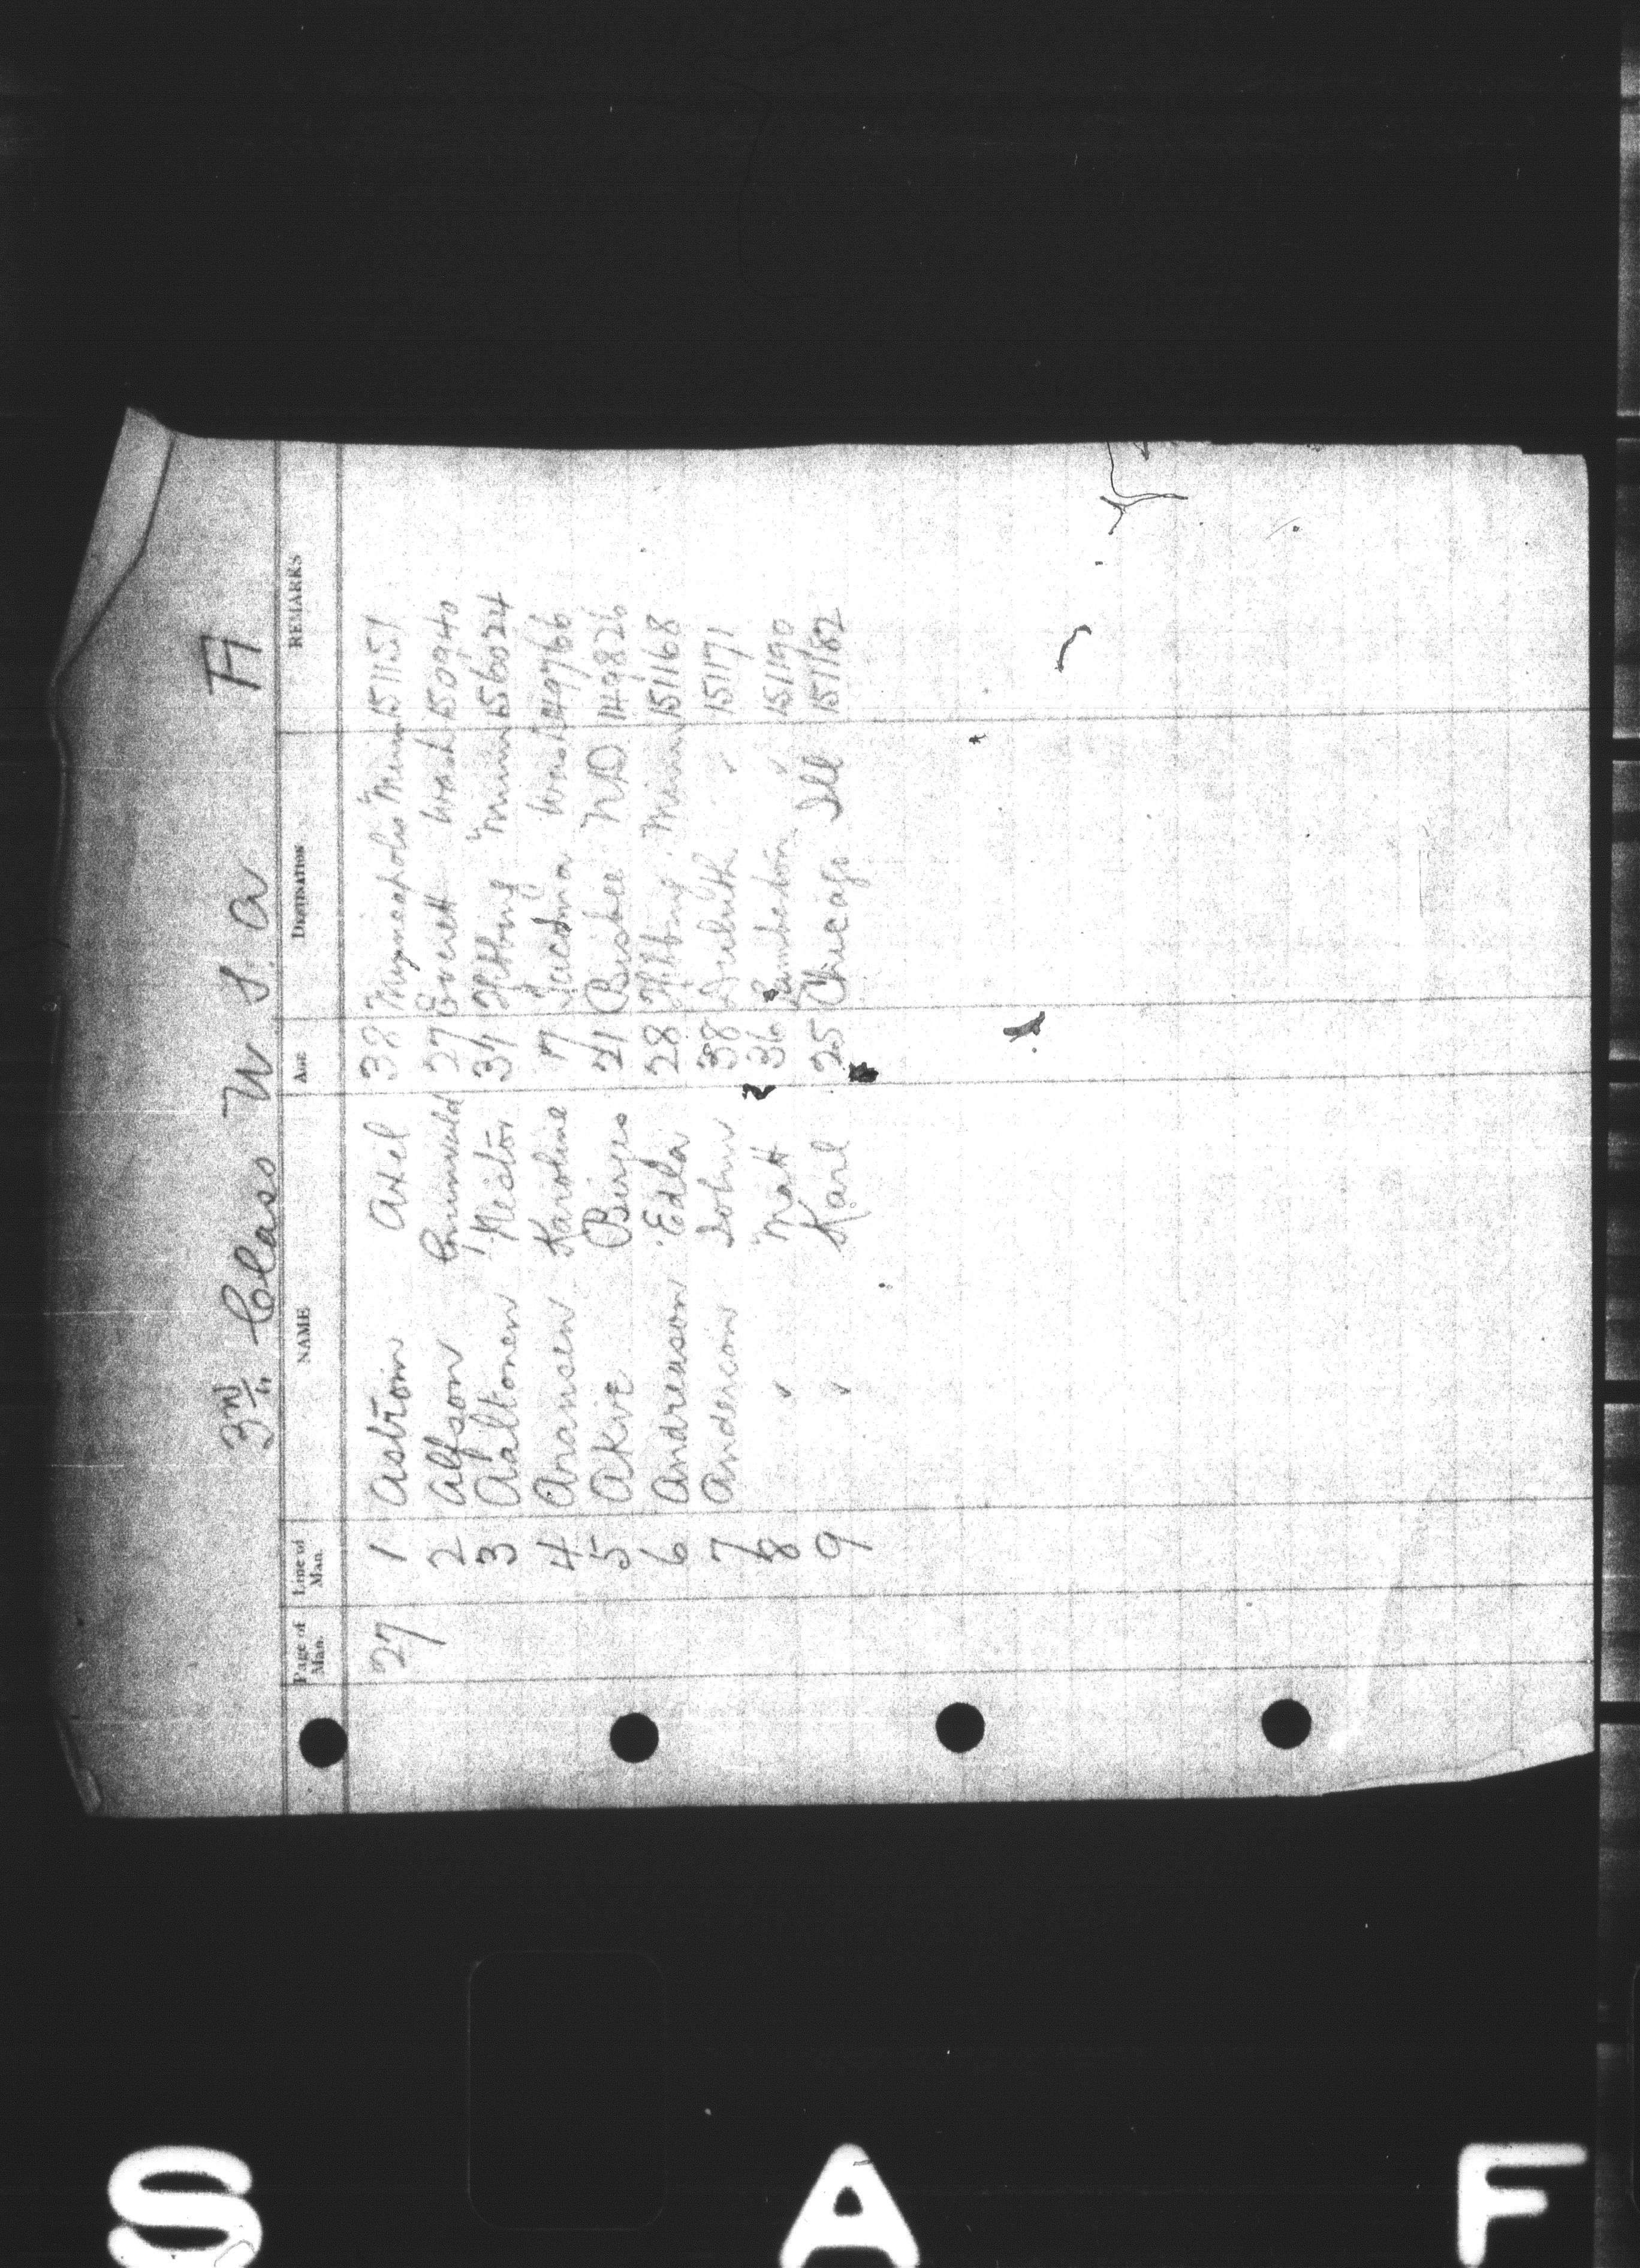 3rd Class U S A A
Page of Man. Line of Man. NAME AGE DESTINATION REMARKS
27 1 Astrom Axel 38 Mynneapolis Minn 151151
2 Alfson 27 Everett Wash 150940
3 Aaltonen Nestor 31 Hibbing Minn 156024
4 Aransen Karoline 7 Tacoma Wash 149766
5 Akive Birges 21 Bisbee ND 149826
6 Andreason Edla 28 Hibbing Minn 151168
7 Anderson John 38 Duluth " 151171
8 " Matt 36 " 151190
9 " Karl 25 Chicago Ill 151182
S A F